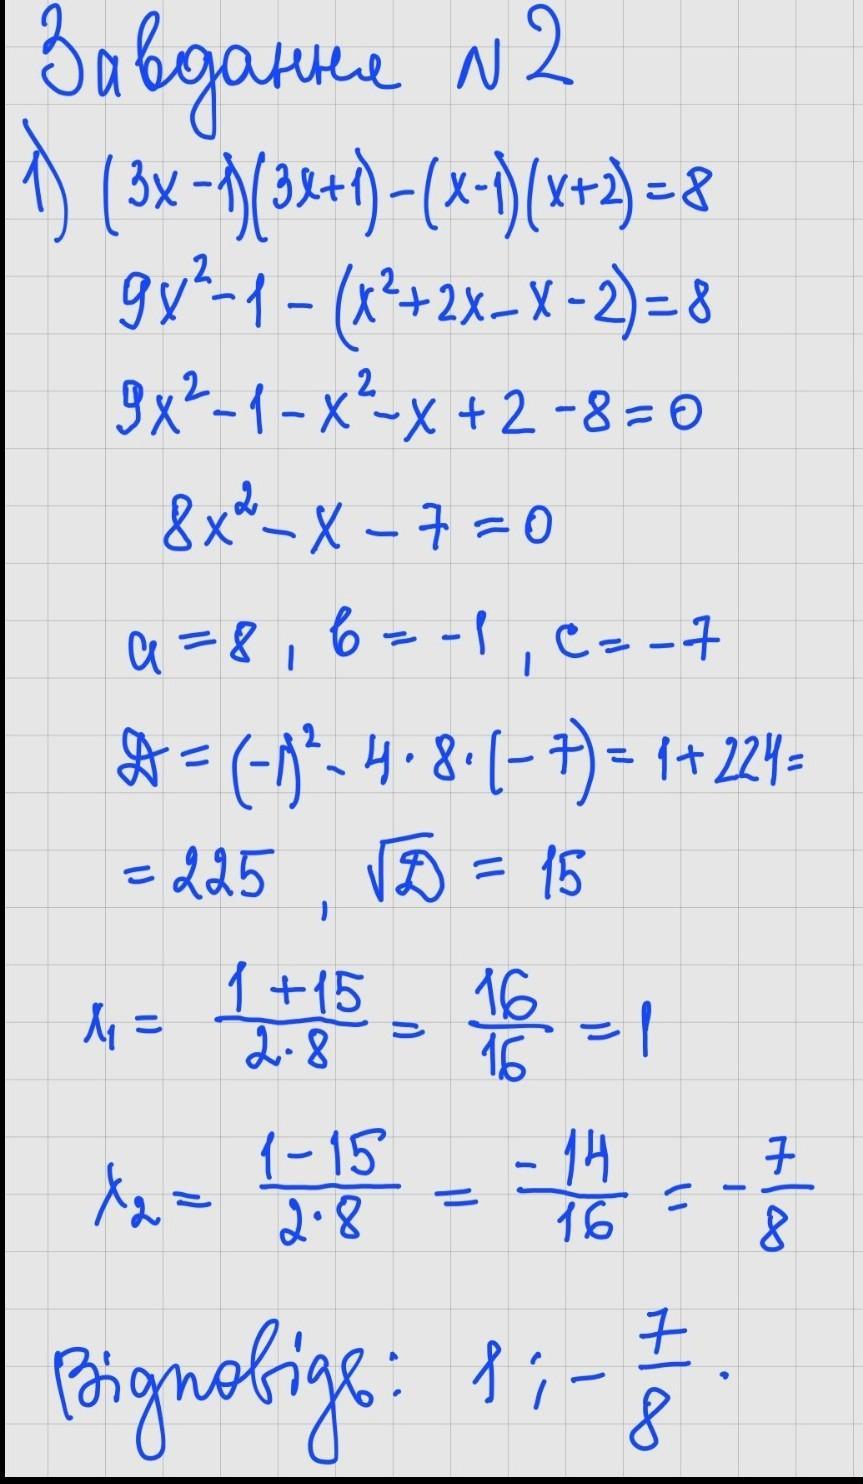 Завдання №2
1) (3x-1)(3x+1)-(x-1)(x+2)=8
9x²-1-(x²+2x-x-2)=8
9x²-1-x²-x+2-8=0
8x²-x-7=0
a=8, b=-1, c=-7
D=(-1)²-4·8·(-7)=1+224=
=225, √D=15
x₁=(1+15)/(2·8)=16/16=1
x₂=(1-15)/(2·8)=-14/16=-7/8
Відповідь: 1; -7/8.